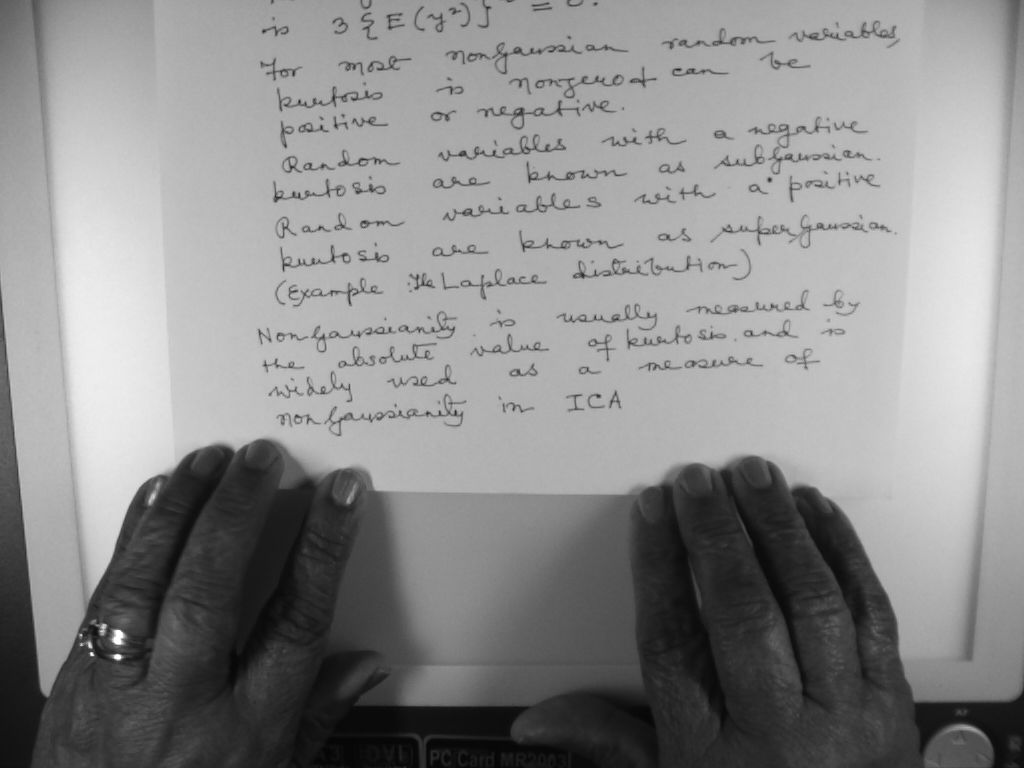 is 3{E(y²)}² = 0.
For most nongaussian random variables,
kurtosis is nonzero & can be
positive or negative.
Random variables with a negative
kurtosis are known as subgaussian.
Random variables with a positive
kurtosis are known as supergaussian.
(Example: The Laplace distribution)
Nongaussianity is usually measured by
the absolute value of kurtosis. and is
widely used as a measure of
nongaussianity in ICA
PC Card MR2003